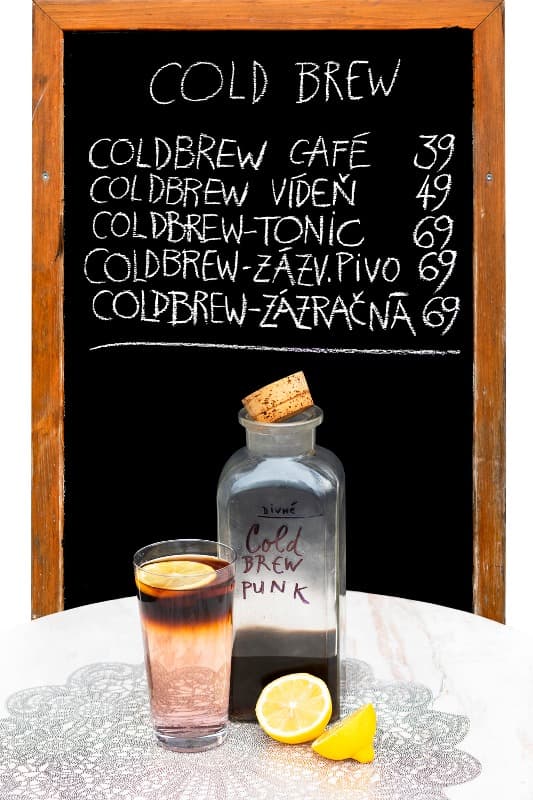 COLD BREW
COLDBREW CAFÉ 39
COLDBREW VÍDEŇ 49
COLDBREW-TONIC 69
COLDBREW-ZÁZV.PIVO 69
COLDBREW-ZÁZRAČNÁ 69
DIVNÉ
Cold
BREW
PUNK